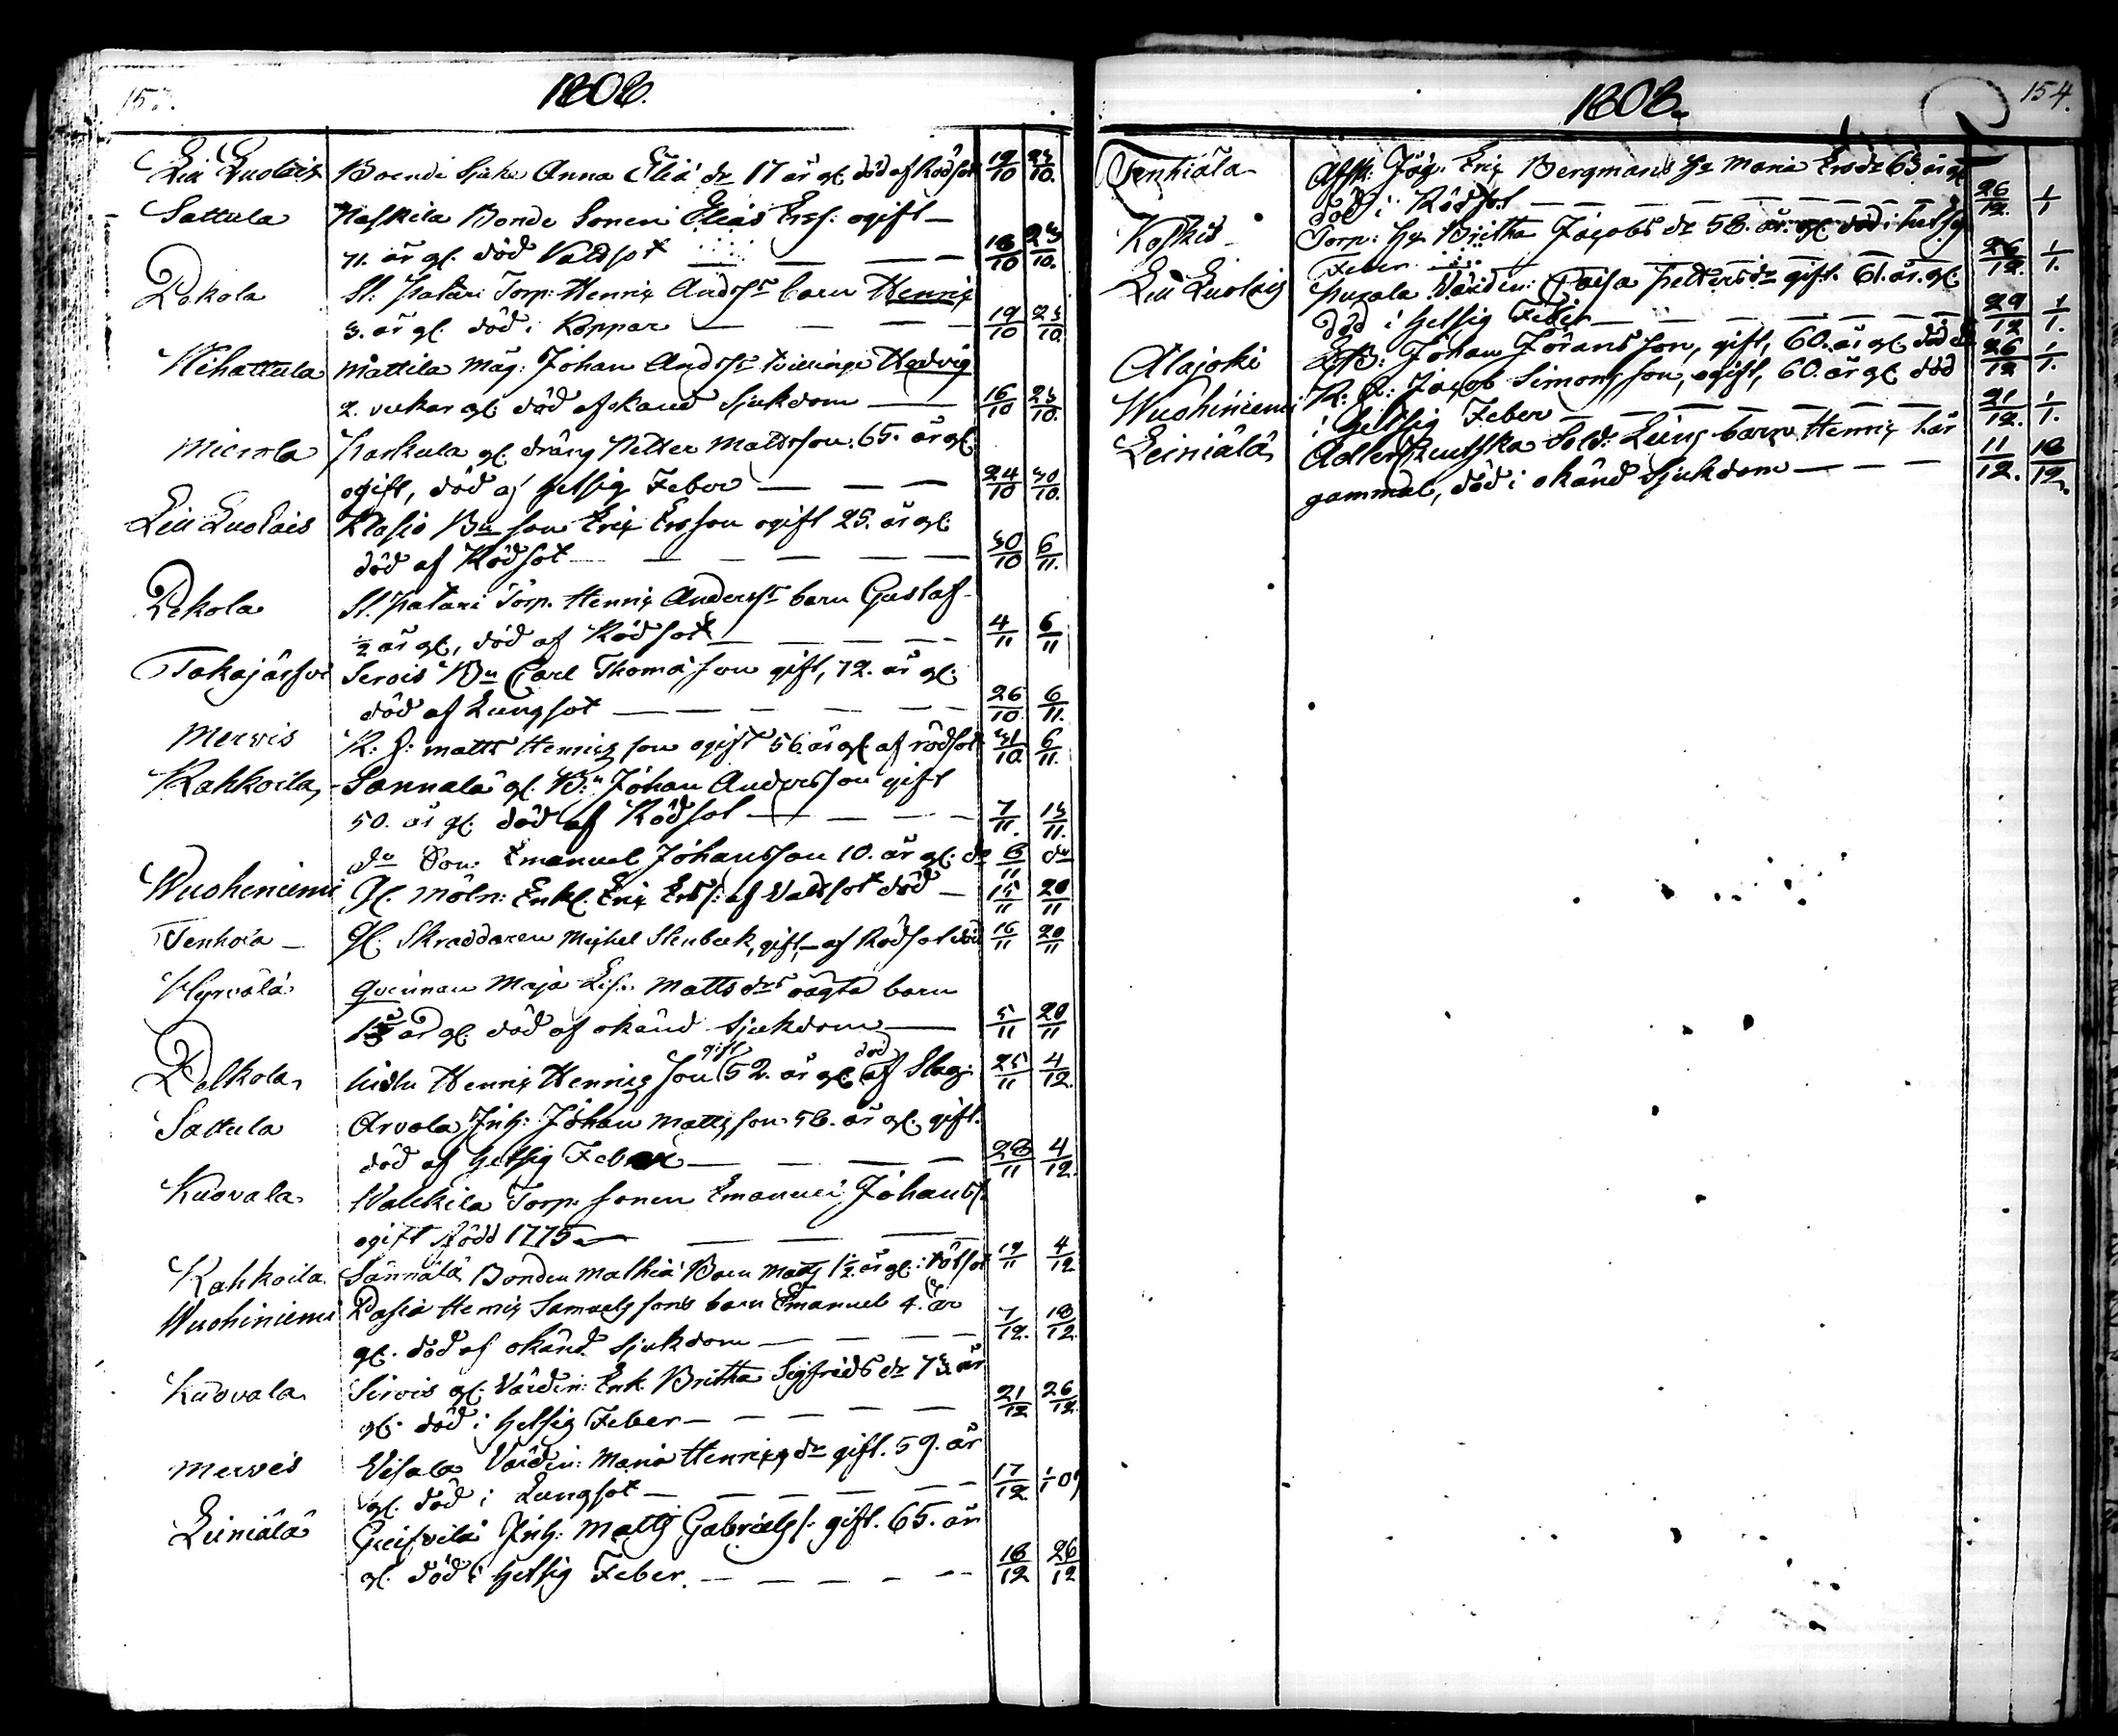 153.
1808.
Lill Luolais Boende Pjeka Anna Eliæ dr 17 år gl. död af Rödsot 19/10 23/10.
Sattula Haskila Bonde Sonen Elias Ersf: ogift —
71. år gl. död Valdsot — — — 18/10 23/10.
Pekola St: Patari Torp: Henrix Andersfs barn Henrix
3. år gl. död i Koppar — — — 19/10 23/10
Nihattula Mattila Mag: Johan Andersfs tvillinge Hedvig
2. veckor gl. död af okänd Sjukdom — 16/10 23/10
Mierola Parkula gl. dräng Petter Mattsson. 65. år gl.
ogift, död af Hetsig Feber — — — 24/10 30/10.
Lill Luolais Klasio Bn son Erix Ersson ogift 25. år gl:
död af Rödsot — — — — 30/10 6/11.
Pekola St. Patari Torp. Henrix Anderssr barn Gustaf
1/2 år gl, död af Rödsot — — — 4/11 6/11
Takajärfvi Serois Bn Carl Thomasson gift, 72. år gl:
död af Lungsot — — — — — 26/10. 6/11.
Mervis R: H: Matts Henricsson ogift 56 år gl. af rödsot 31/10. 6/11.
Kahkoila, Sannala gl. B:n Johan Andersson gift
50. år gl. död af Rödsot — — — 7/11. 13/11.
do Son: Emanuel Johansson 10. år gl: do 8/11 do
Wuohiniemi Gl. Möln: Enkl. Erix Ersf: af Valdsot död — 15/11 20/11
Tenhiä — Gl. Skräddaren Michel Stenbeck, gift, — af Rödsot död 16/11 20/11
Hyrvälä qvinnan Maja Lis: Matts drs oägta barn
år gl. död af okänd Sjukdom — 5/11 20/11
Pelkola, Henrix Henricsson gift 52. år gl. död af Slag. 25/11 4/12.
Sattula Arvola Inh: Johan Mattsson 58. år gl. gift.
död af Hetsig Feber — — — — 28/11 4/12.
Kuovala Walckila Torp: sonen Emanuel Johansf.
ogift född 1775 — — — 19/11 4/12
Kahkoila Sannala Bonden Mathiæ Barn Matts 1 1/2 år gl: rödsot
Wuohiniemi Pasia Henrix Samuelssons barn Emanuel 4. år
gl. död af okänd Sjukdom — — — 7/12. 18/12.
Kuovala Sirvois gl. Värdin: Enk. Britha Sigfrids dr 73. år
gl. död i Hetsig Feber — — — — 21/12 26/12.
Mervis Uisala Värdin: Maria Henrixs dr gift. 59. år
gl. död i Lungsot — — — — — 17/12. 1/1 09
Leiniälä Inh: Matts Gabrielsf: gift. 65. år
gl. död i Hetsig Feber. — — — — 18/12 26/12
154.
1808.
Tenhiälä Afsk: Jäg: Erix Bergmans Hu Maria Ersdr 63 år gl.
död i Rödsot — — — — — 26/12. 1/1
Koskis Torp: Hu Britha Jacobs dr 58. år. gl. död i hetsig
Feber — — — — 26/12. 1/1.
Lill Luolais Pusala Värdin: Caisa Petters dr gift. 61. år. gl.
död i Hetsig Feber — — — — 29/12 1/1.
Alajoki Johan Göransson, gift, 60. år gl. död 26/12 1/1.
Wuohiniemi R: Q: Jacob Simonsson, ogift, 60. år gl. död
i Hetsig Feber — — — — 21/12. 1/1.
Leiniälä Adlercreutzska Sold: barn Henrix 1. år
gammal, död i okänd Sjukdom — — — 11/12. 18/12.